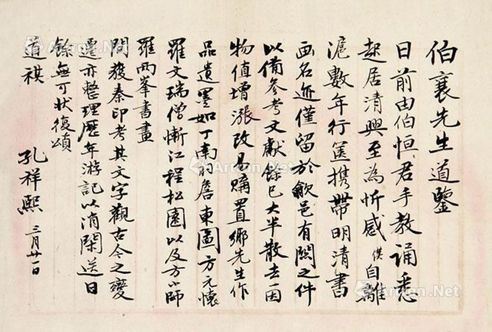 伯襄先生道鑒
日前由伯恒君手教誦悉
起居清興至為忻感侯自離
滬數年行篋攜帶明清書
画名近僅留於歙邑有関之件
以備參考文獻餘已大半散去一因
物值增漲改易購置鄉先生作
品遺墨如丁南羽詹東圖方元懷
羅文瑞僧慚江程松園以及方小師
羅兩峯書畫
間發秦印考其文字觀古今之變
遷亦整理歷年游記以消閑送日
餘無可狀復頌
道祺
孔祥熙 三月廿一日